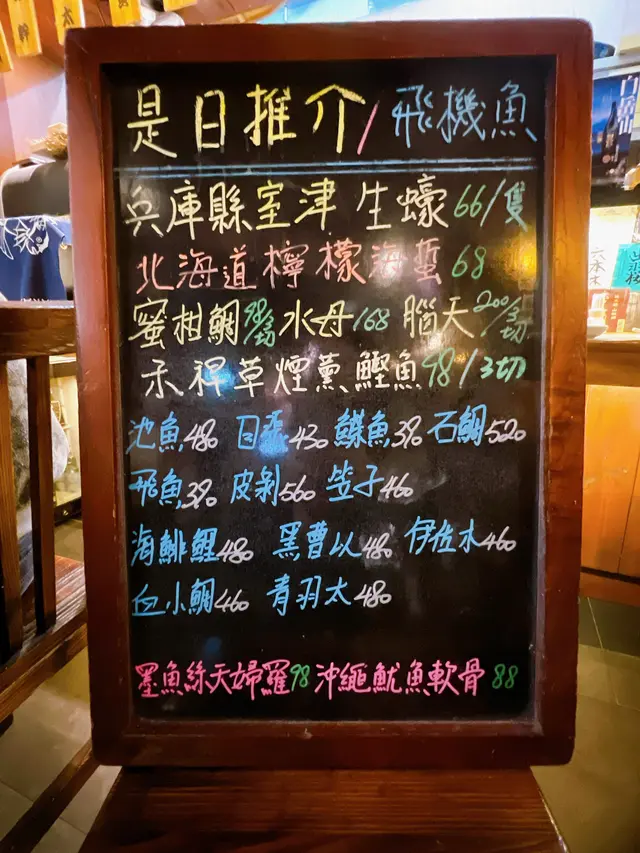 是日推介/飛機魚
兵庫縣室津生蠔66/隻
北海道檸檬海蜇68
蜜柑鯛98/3切 水母168 腦天200/3切
禾稈草煙薰鰹魚98/3切
池魚480 目張430 鰈魚390 石鯛520
飛魚390 皮剝560 笠子460
海鯡鯉480 黑曹以480 伊佐木460
血小鯛460 青羽太480
墨魚絲天婦羅98 沖繩魷魚軟骨88
六本木